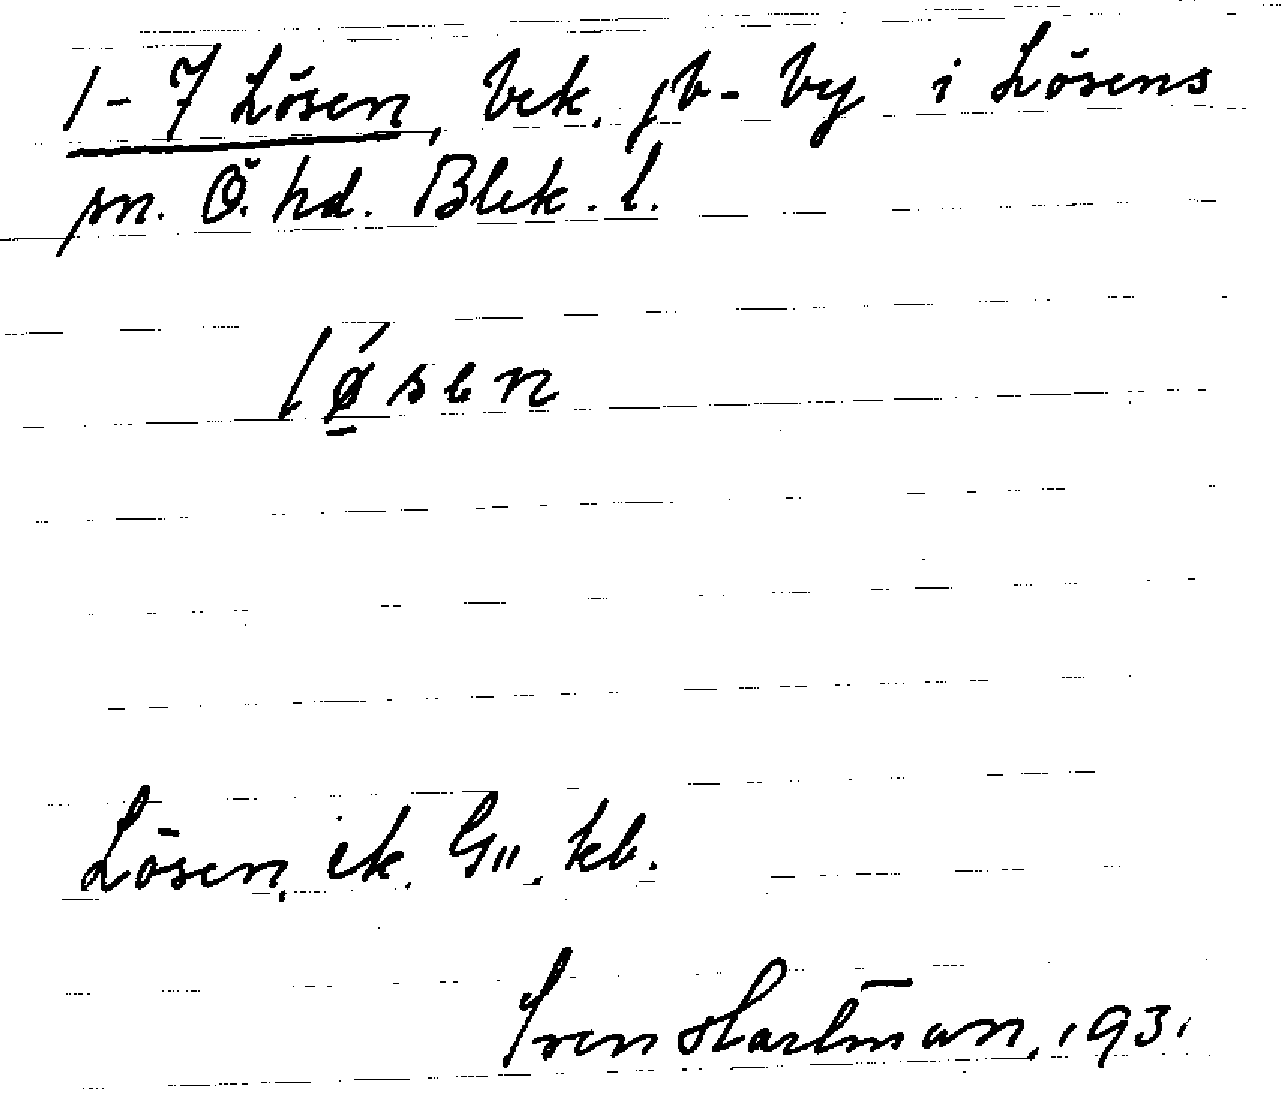 1-7 Lösen, bek. jb-by i Lösens
sn. Ö. hd. Blek. l.
lǿ̱sen
Lösen, ek. G11, kb.
Sven Hartman, 1931